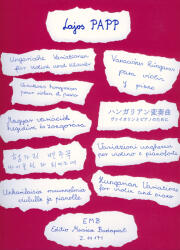 Lajos PAPP
Ungarische Variationen
für Violine und Klavier
Variations hongroises
pour violon et piano
Magyar variációk
hegedűre és zongorára
Variations húngaras
para violín
y piano
ハンガリアン変奏曲
ヴァイオリンとピアノのために
Variazioni ungheresi
per violino e pianoforte
Hungarian Variations
for violin and piano
Unkarilaisia muunnelmia
viululle ja pianolle
EMB
Editio Musica Budapest